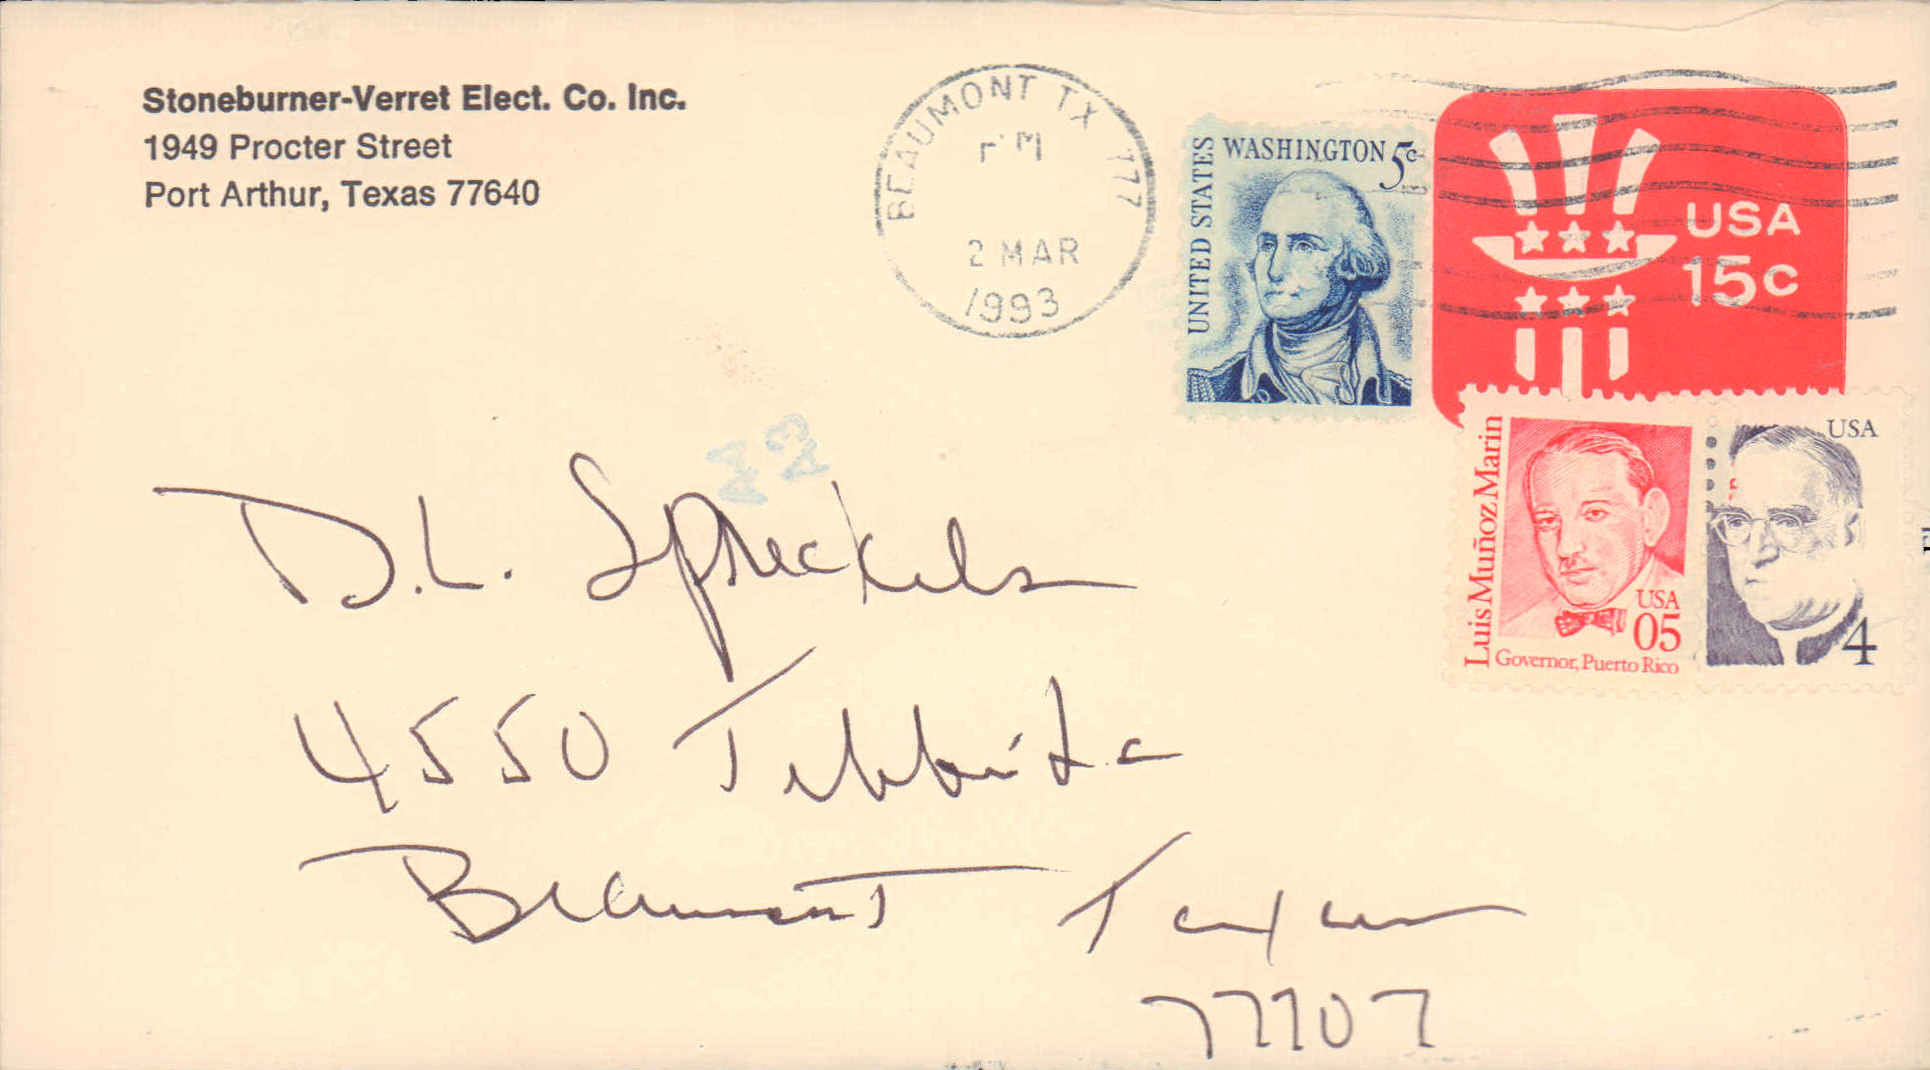 Stoneburner-Verret Elect. Co. Inc.
1949 Procter Street
Port Arthur, Texas 77640
BEAUMONT TX 777
PM
2 MAR
1993
UNITED STATES
WASHINGTON 5c
USA
15c
Luis Muñoz Marin
USA
05
Governor, Puerto Rico
USA
4
D.L. Spreckels
4550
Beaumont Texas
77707